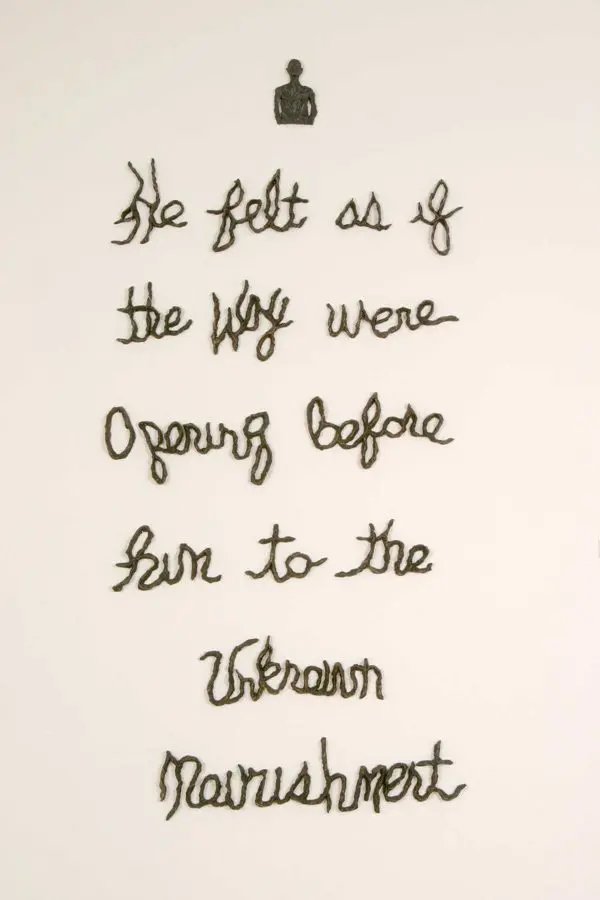 He felt as if
the Way were
Opening before
him to the
Unknown
Nourishment